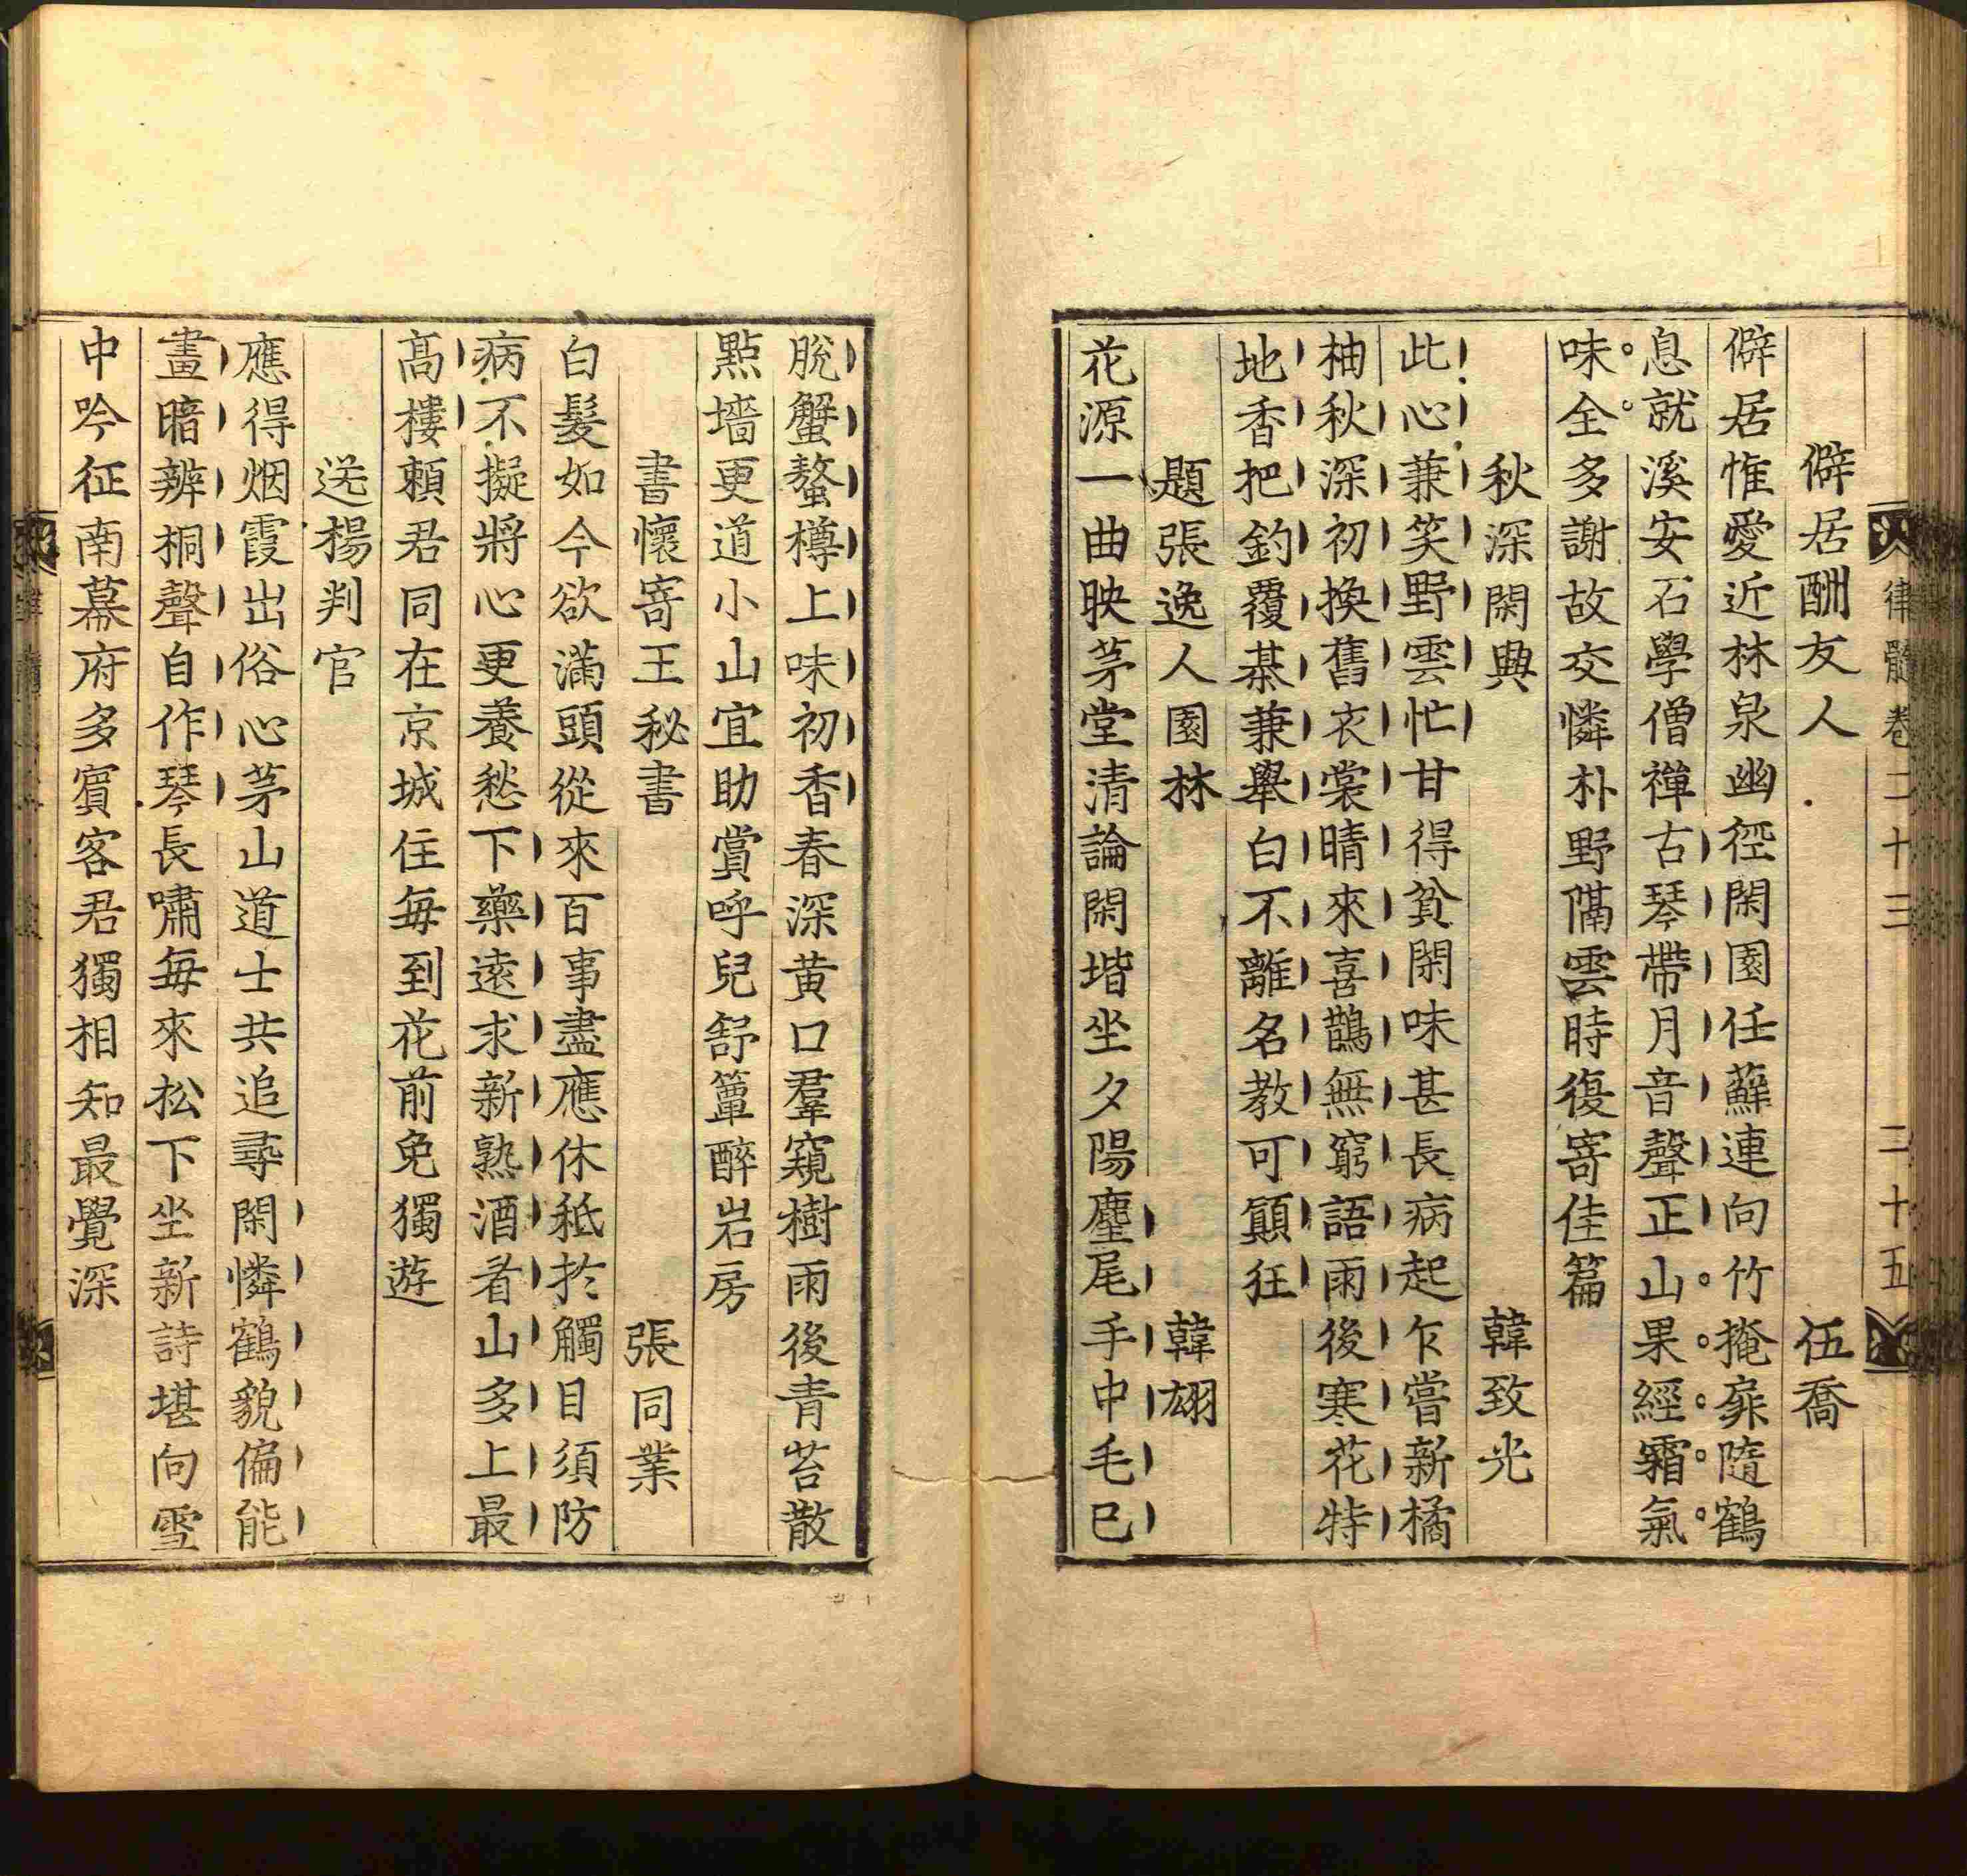 律髓卷二十三 二十五
僻居酬友人 伍喬
僻居惟愛近林泉幽徑閑園任蘚連向竹掩扉隨鶴
息就溪安石學僧禪古琴帶月音聲正山果經霜氣
味全多謝故交憐朴野隔雲時復寄佳篇
秋深閑興 韓致光
此心兼笑野雲忙甘得貧閑味甚長病起乍嘗新橘
柚秋深初換舊衣裳晴來喜鵲無窮語雨後寒花特
地香把釣覆棊兼舉白不離名教可顛狂
題張逸人園林 韓翃
花源一曲映茅堂清論閑堦坐夕陽麈尾手中毛已
脫蟹螯樽上味初香春深黃口羣窺樹雨後青苔散
點墻更道小山宜助賞呼兒舒簟醉岩房
書懷寄王秘書 張同業
白髮如今欲滿頭從來百事盡應休秪於觸目須防
病不擬將心更養愁下藥遠求新熟酒看山多上最
高樓賴君同在京城住每到花前免獨遊
送楊判官
應得烟霞出俗心茅山道士共追尋閑憐鶴貌偏能
畫暗辨桐聲自作琴長嘯每來松下坐新詩堪向雪
中吟征南幕府多賓客君獨相知最覺深